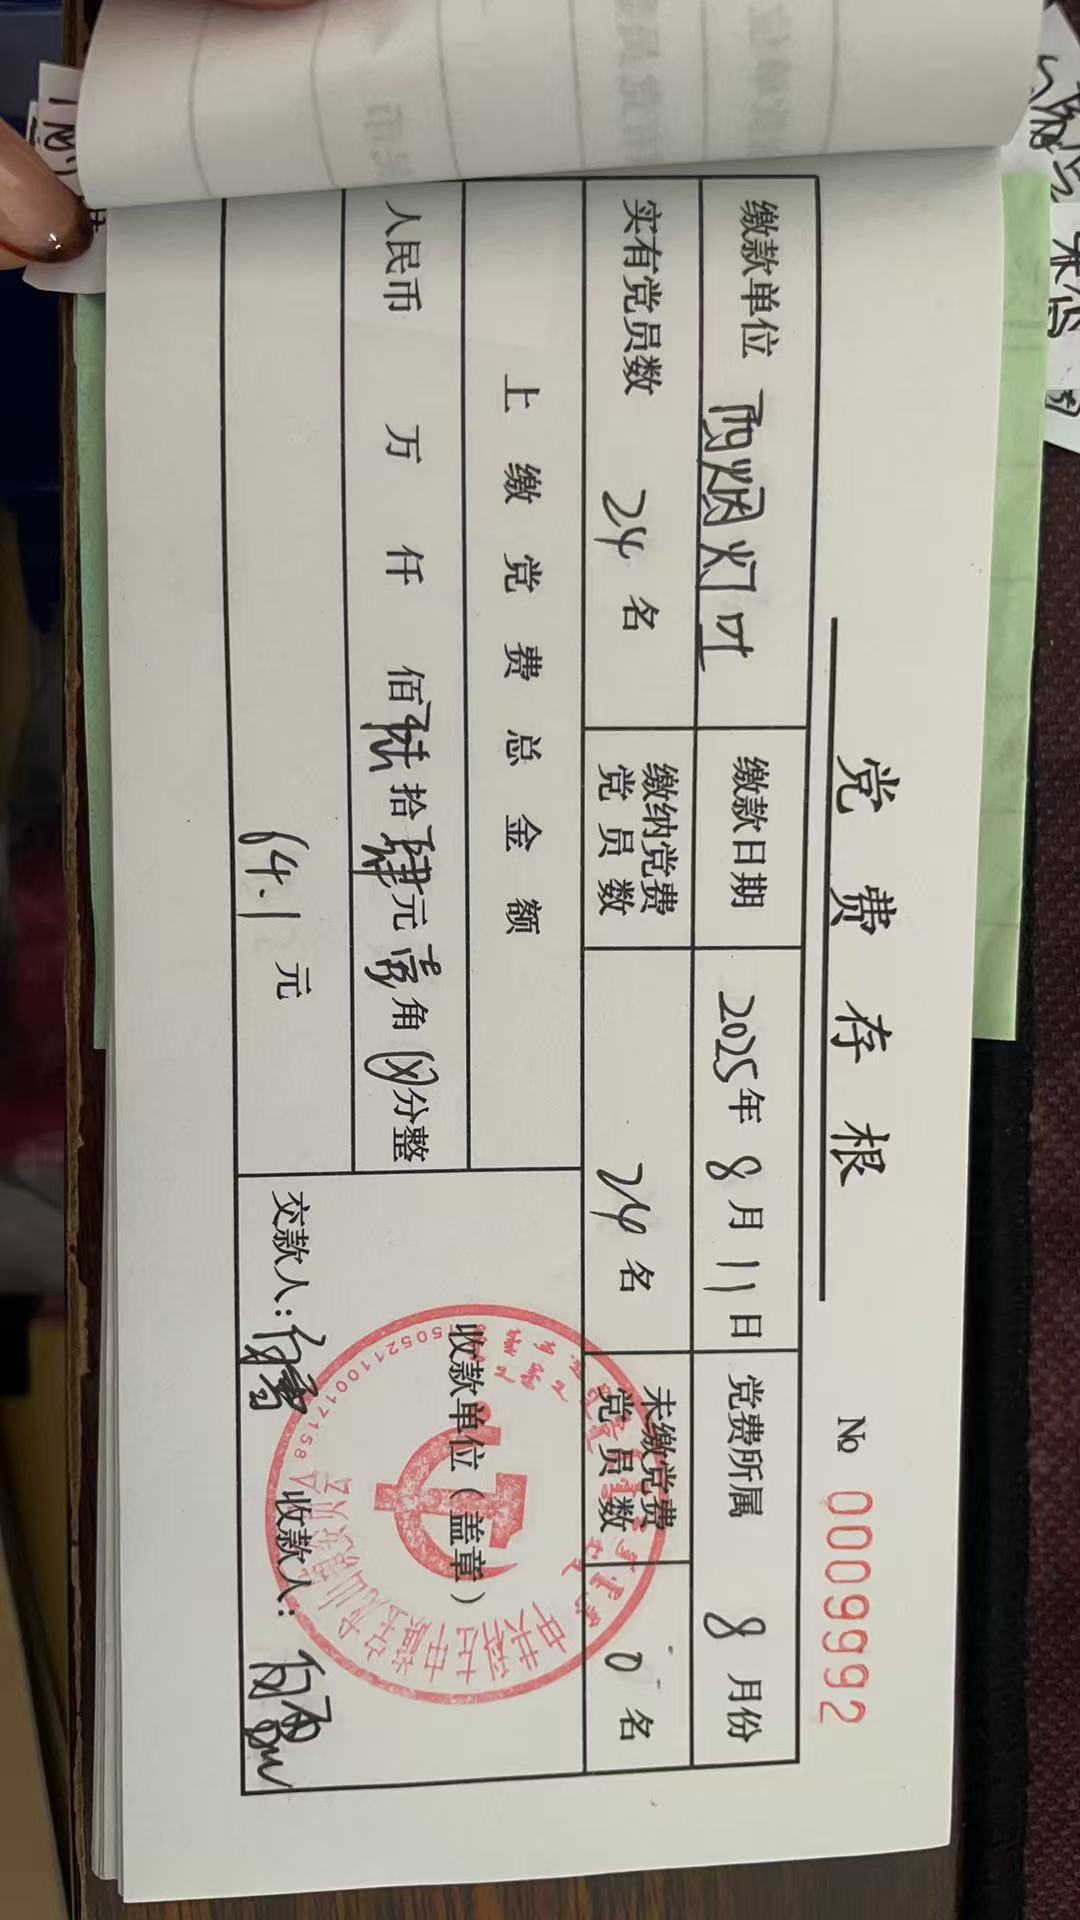 党费存根
№ 0009992
缴款单位 缴款日期 2025年8月11日 党费所属 8月份
实有党员数 24名 缴纳党费党员数 24名 未缴党费党员数 0名
上缴党费总金额
收款单位（盖章）
人民币 万 仟 佰陆拾肆元壹角⊗分整
64.1元
交款人： 收款人：
15052110017158